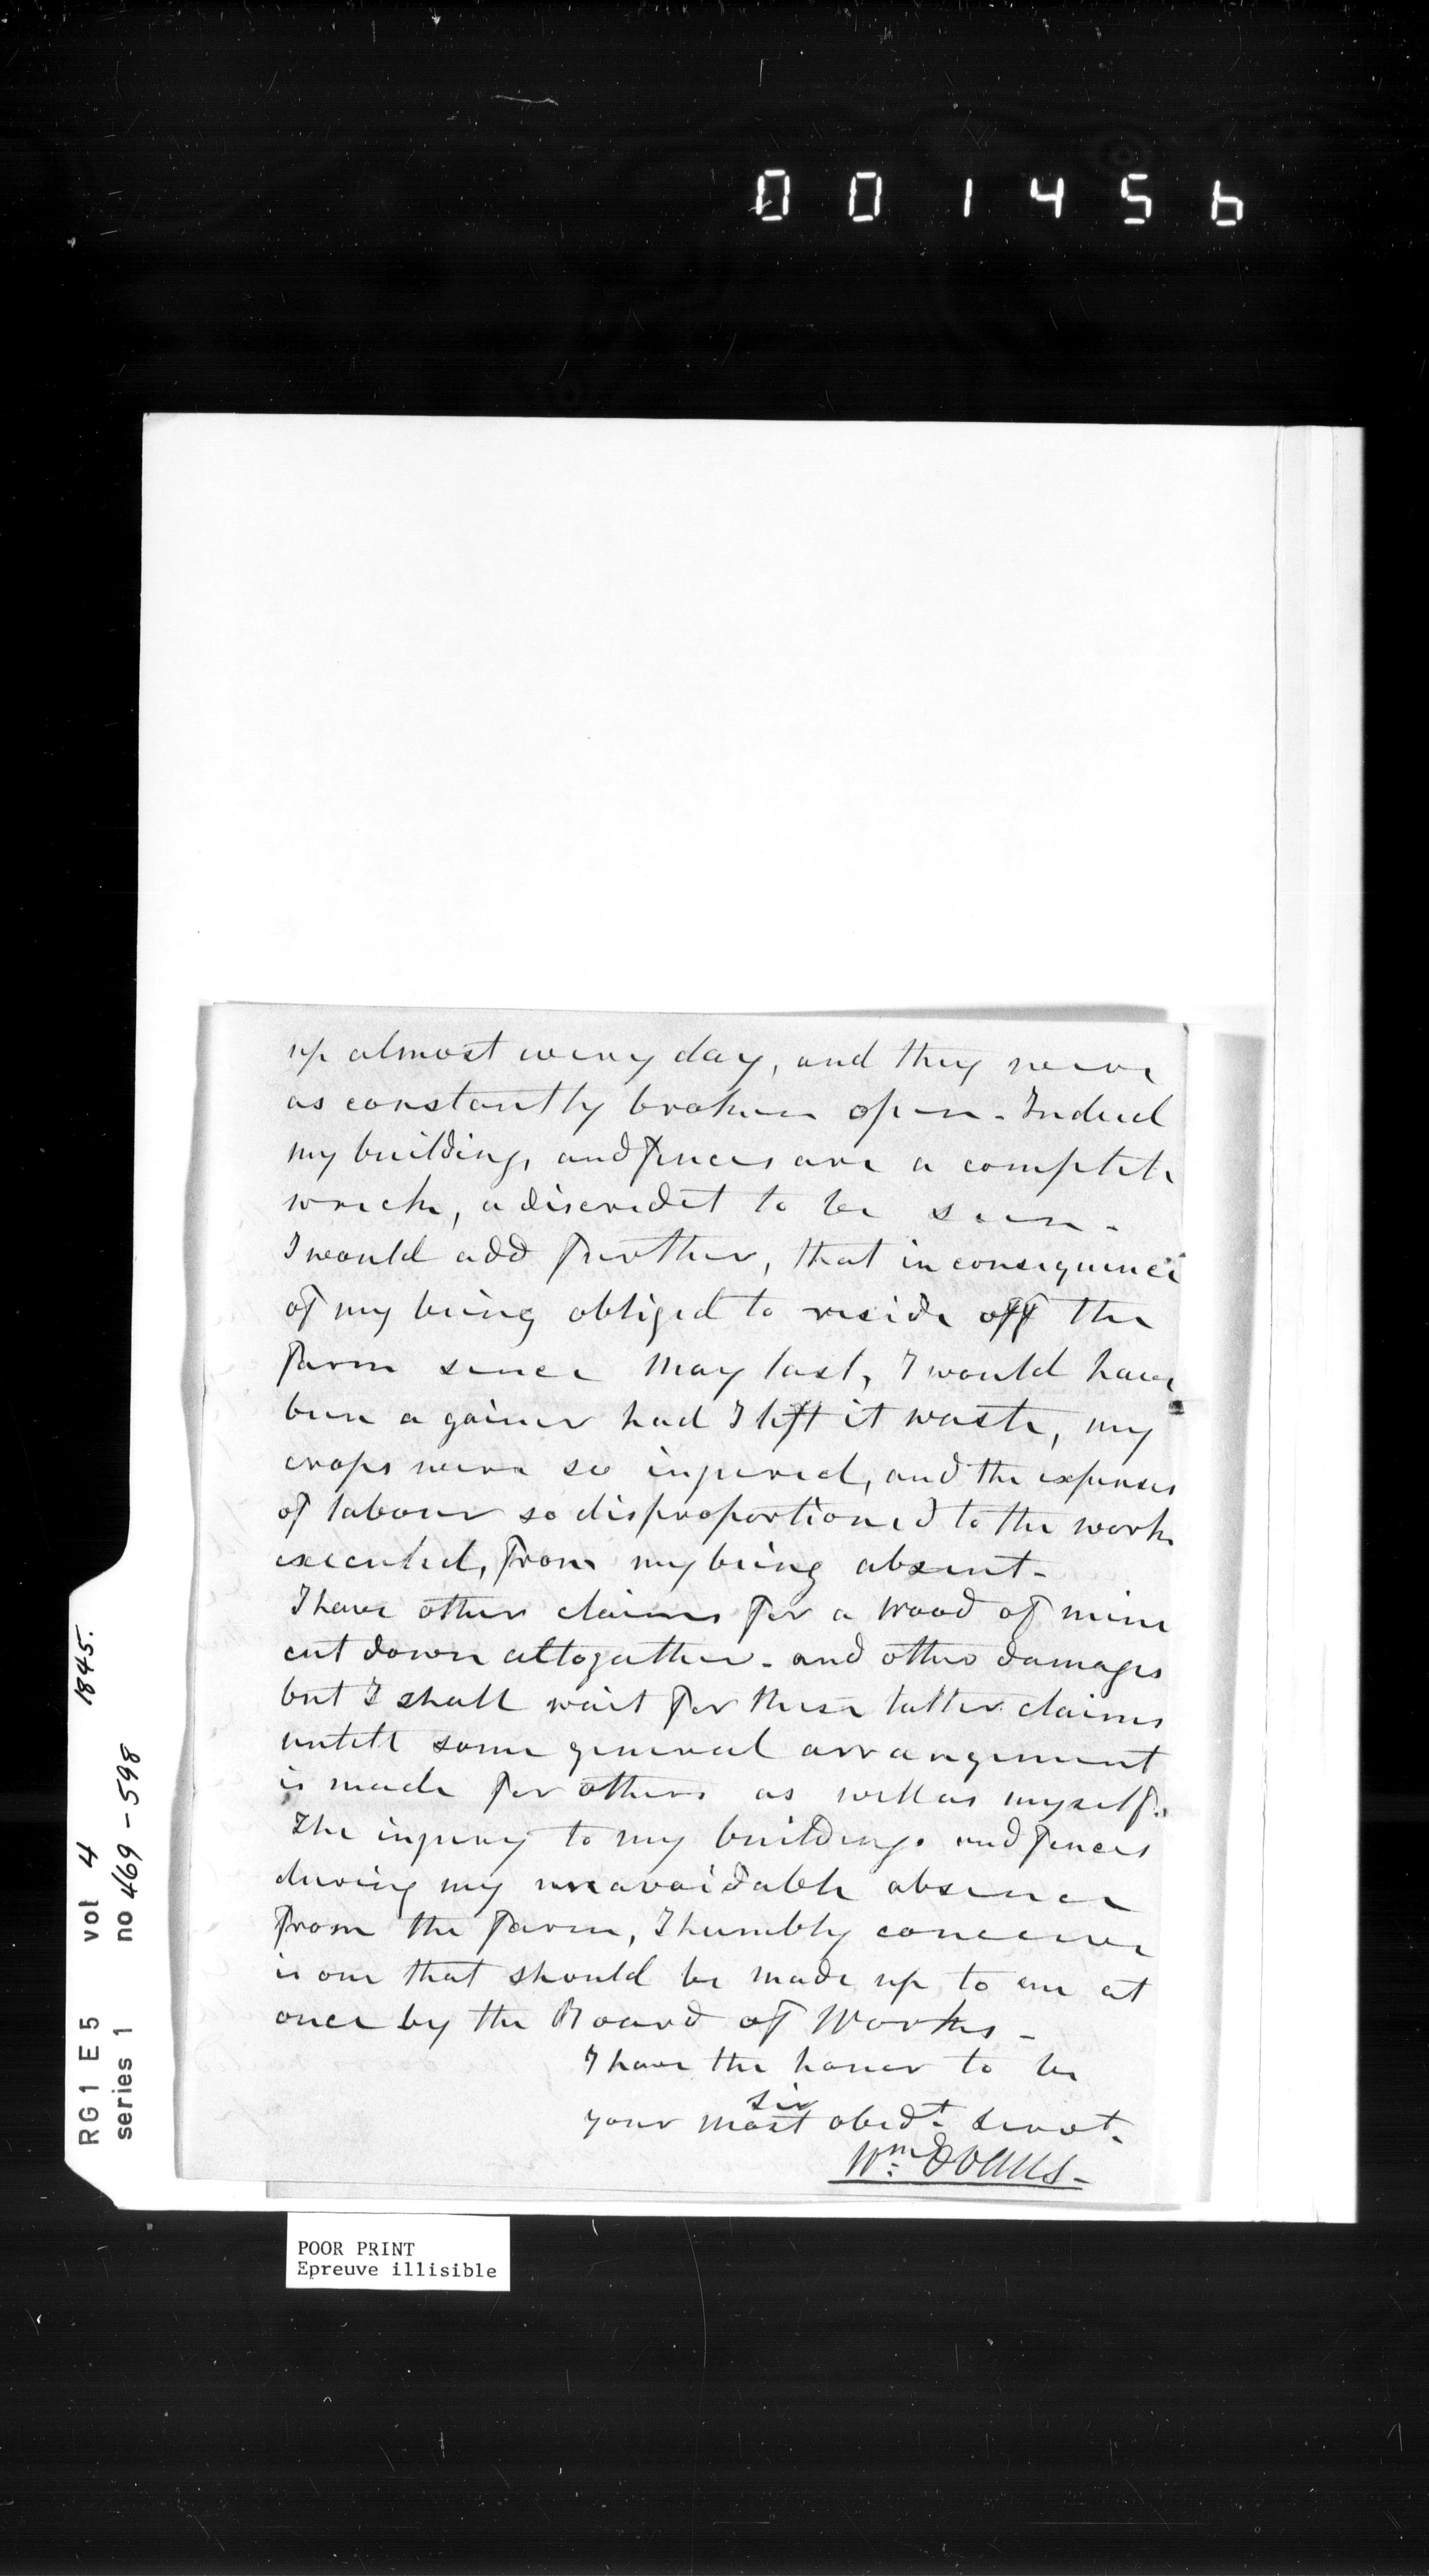 001456
up almost every day, and they were
as constantly broken open - Indeed
my buildings and fences are a complete
wreck, a discredit to be seen -
I would add further, that in consequence
of my being obliged to reside off the
farm since May last, I would have
been a gainer had I left it waste, my
crops were so injured, and the expenses
of labour so disproportioned to the work
executed, from my being absent -
I have other claims for a wood of mine
cut down altogather - and other damages
but I shall wait for these latter claims
untill some general arrangement
is made for others as well as myself.
The injury to my buildings and fences
during my unavoidable absence
from the farm, I humbly conceive
is one that should be made up to me at
once by the Board of Works -
I have the honor to be
sir
your most obedt. servt.
Wm. Evans -
RG1 E5 vol 4 1845.
series 1 no 469-598
POOR PRINT
Epreuve illisible